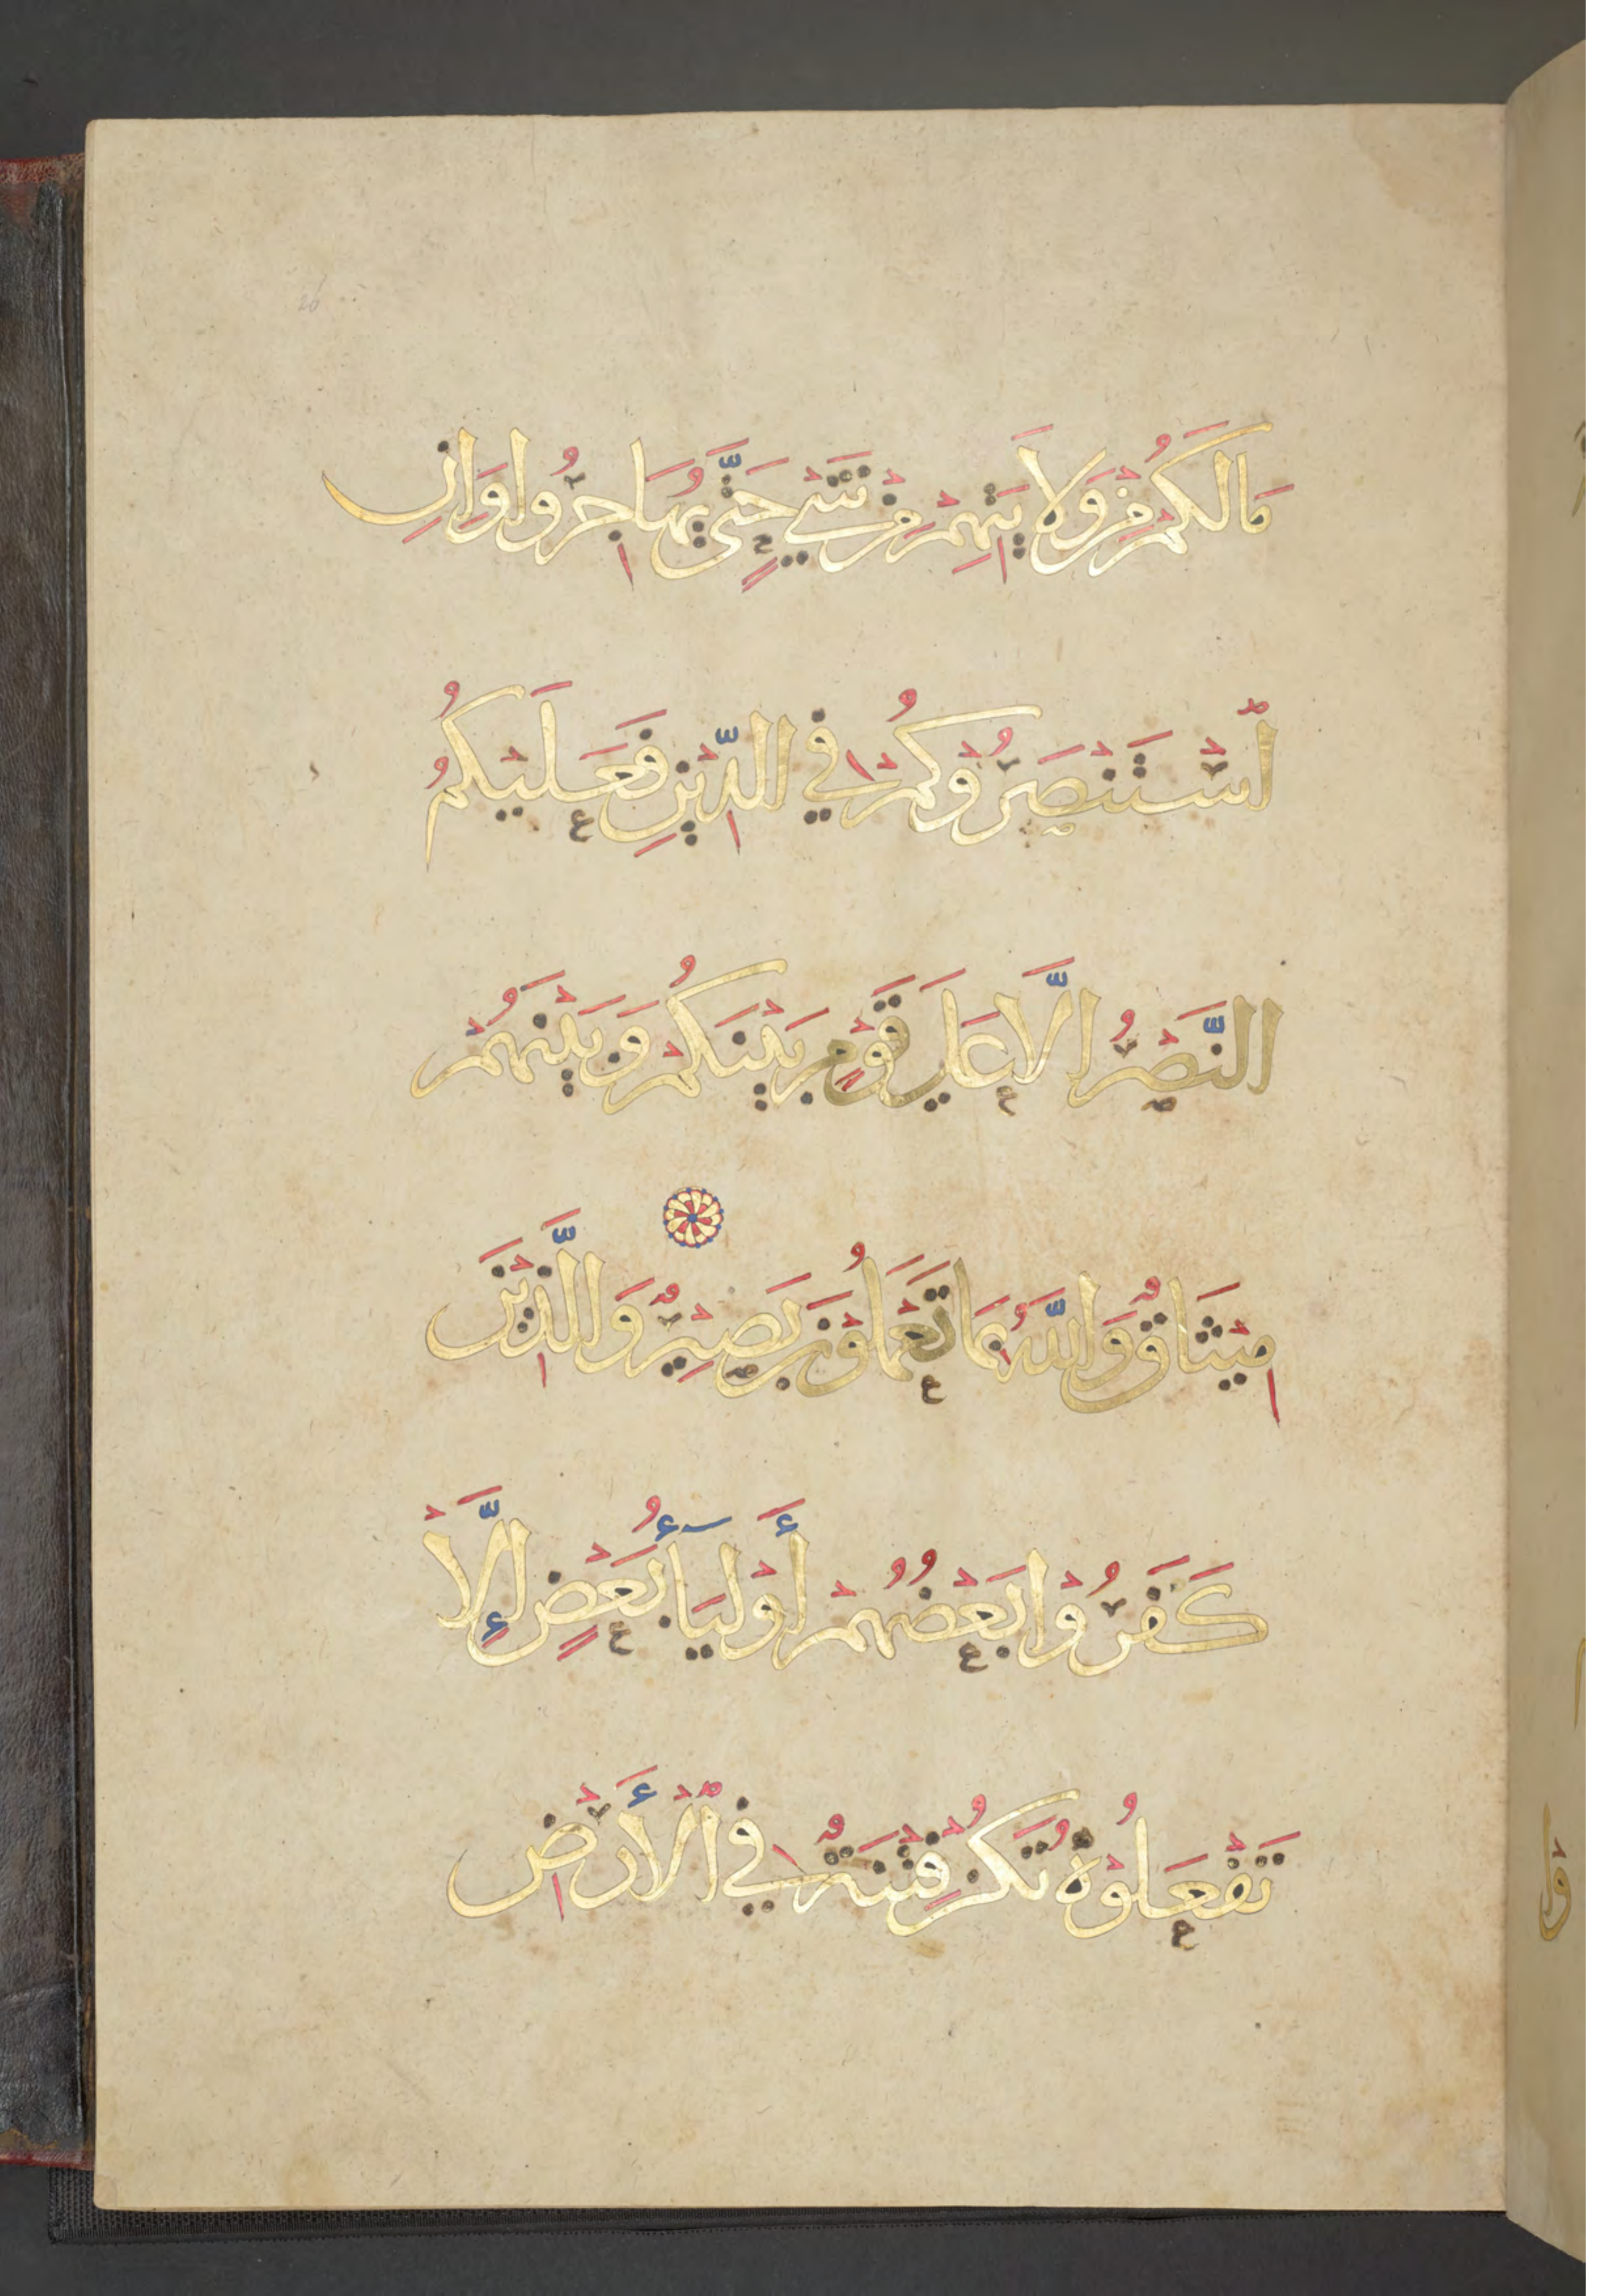 مَالَكُمْ مِنْ وَلَا يَتِهِمْ مِنْ شَيْءٍ حَتَّى يُهَاجِرُوا وَاِنِ
اسْتَنْصَرُوكُمْ فِي الدِّيْنِ فَعَلَيْكُمُ
النَّصْرُ اِلَّا عَلَي قَوْمٍ بَيْنَكُمْ وَبَيْنَهُمْ
مِيْثَاقٌ وَاللَّهُ بِمَا تَعْمَلُوْنَ بَصِيْرٌ وَالَّذِيْنَ
كَفَرُوْا بَعْضُهُمْ أَوْلِيَآءُ بَعْضٍ إِلَّا
تَفْعَلُوْهُ تَكُنْ فِتْنَةٌ فِي الْأَرْضِ
26